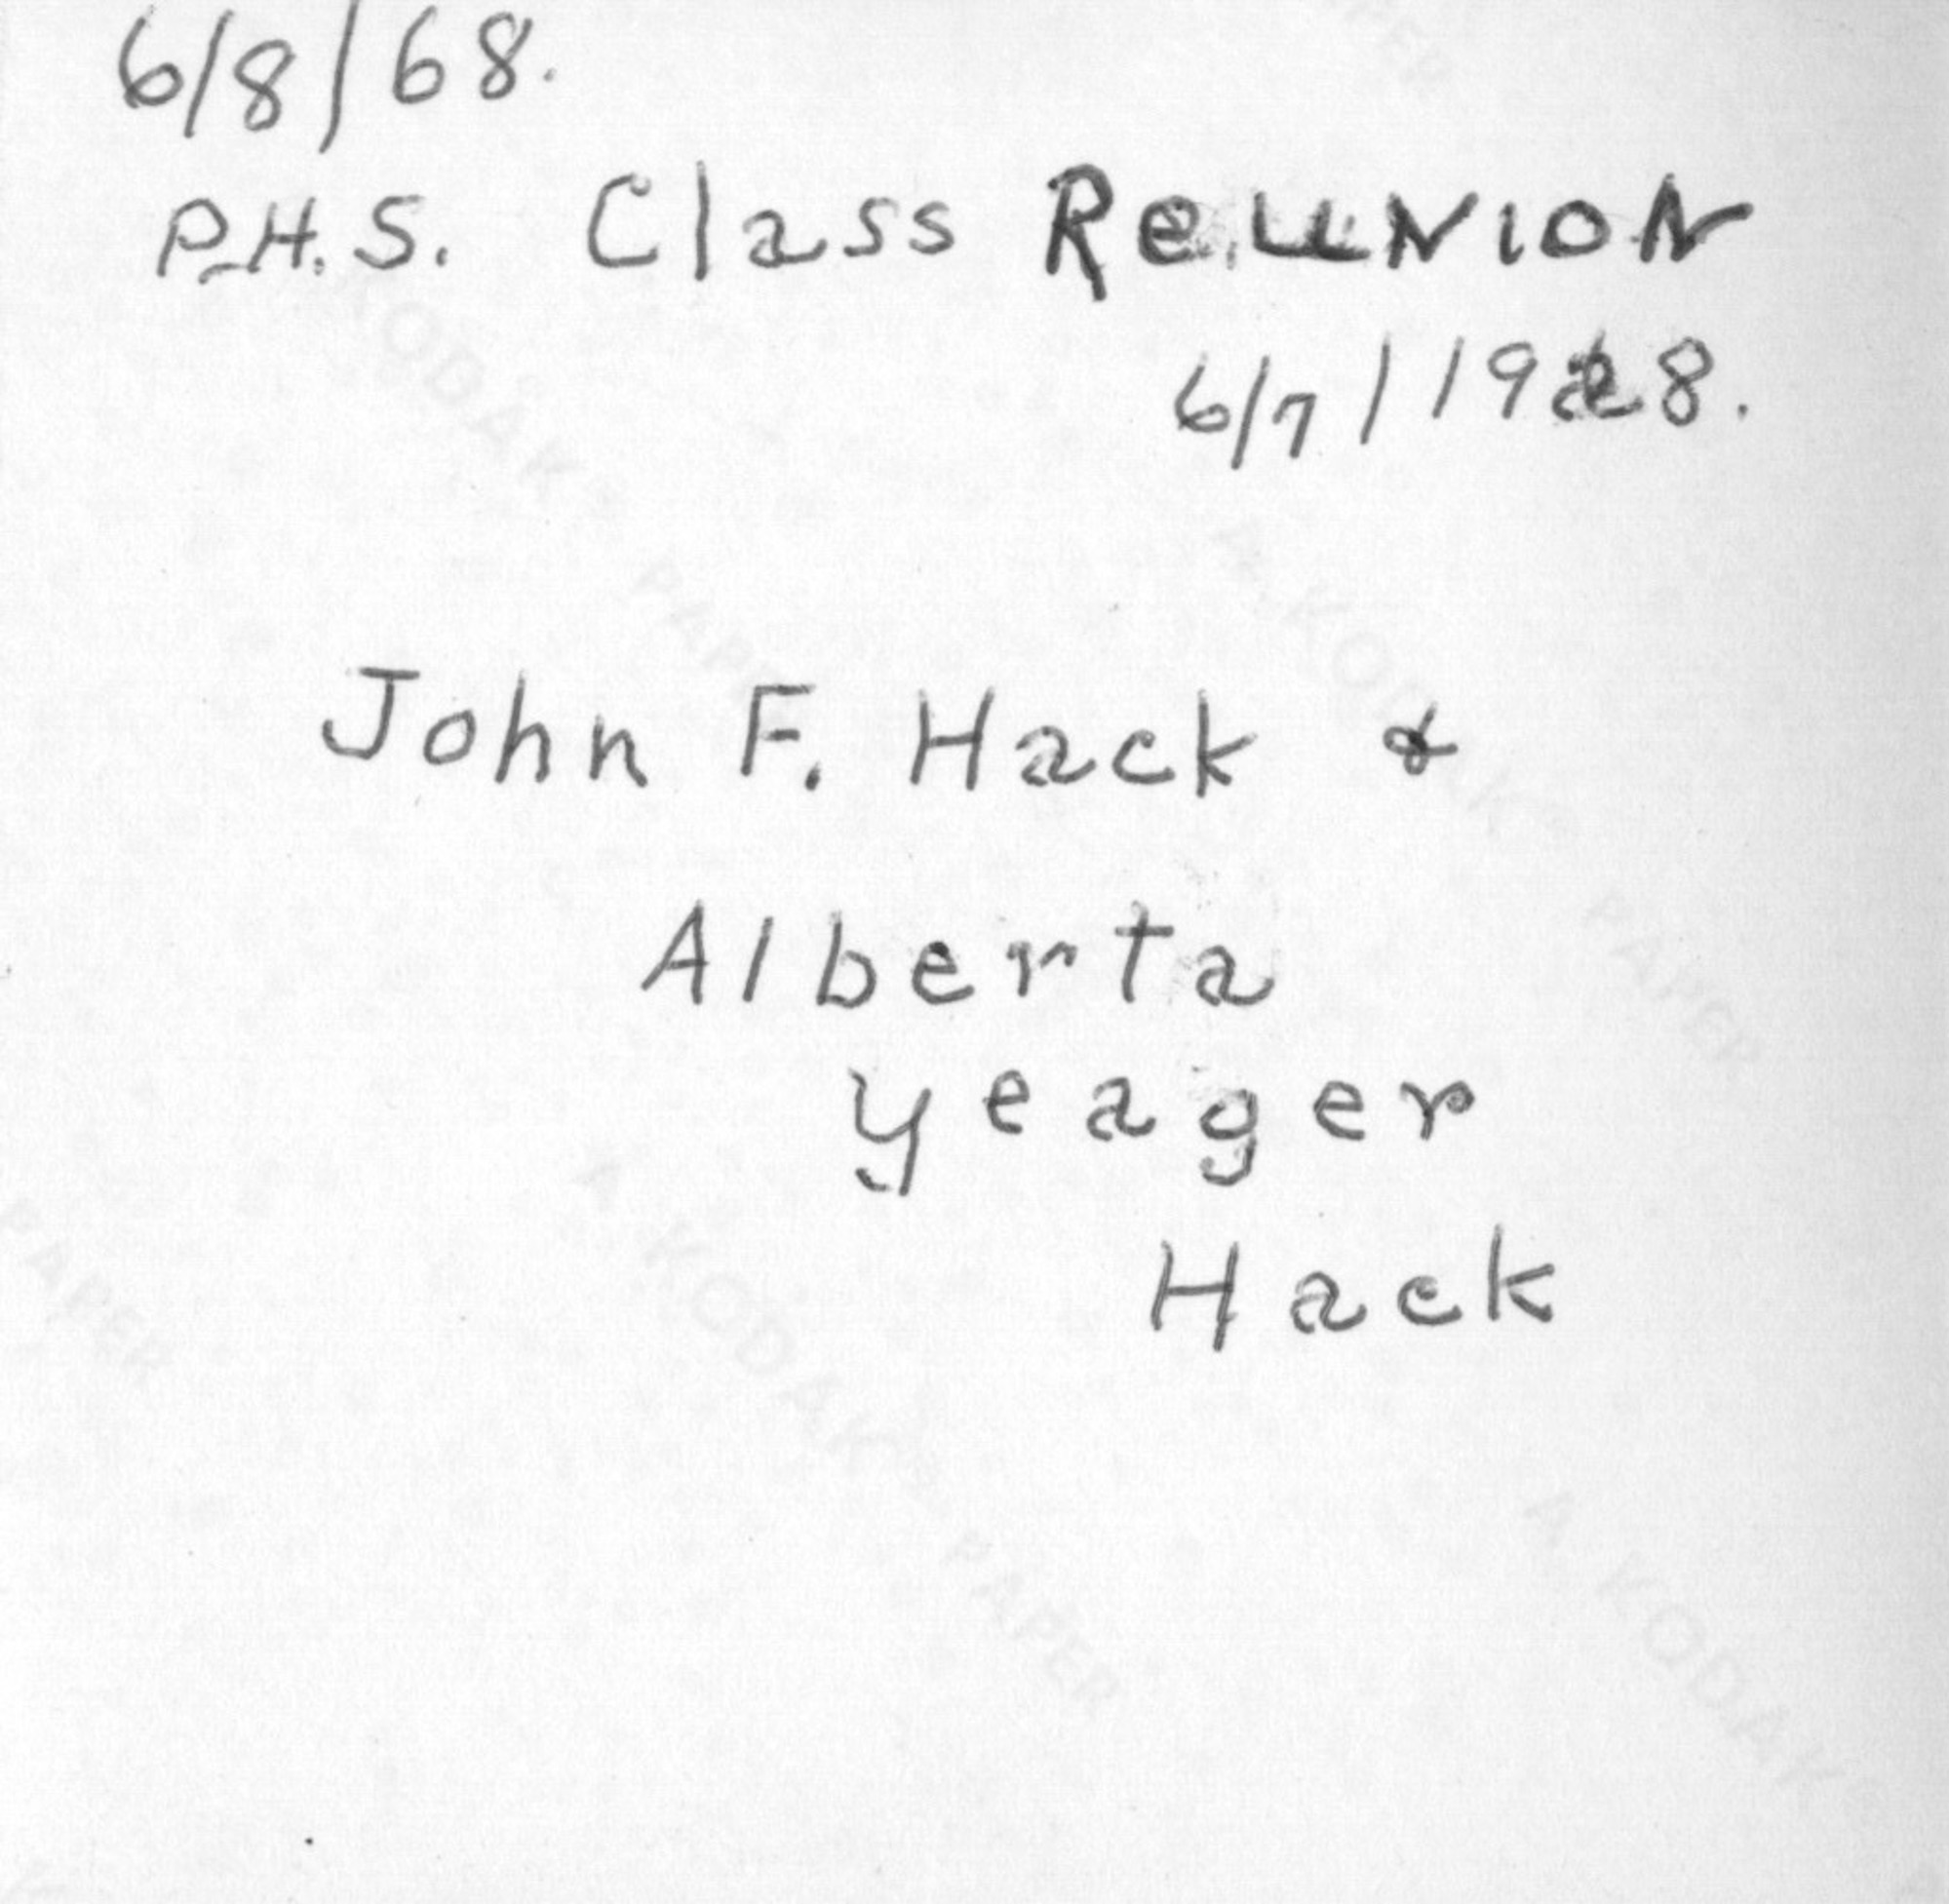 6/8/68.
P.H.S. Class ReUNION
6/7/1928.
John F. Hack &
Alberta
Yeager
Hack
A KODAK PAPER
A KODAK PAPER
A KODAK PAPER
A KODAK
PAPER
PAPER